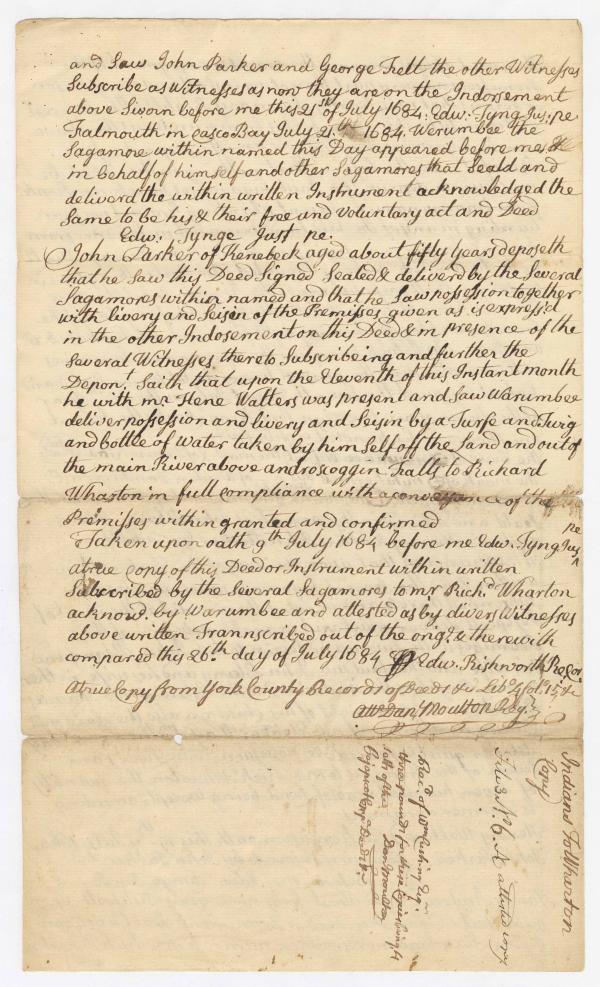 and Saw John Parker and George Felt the other Witnesses
Subscribe as Witnesses as now they are on the Indorsement
above Sworn before me this 21st of July 1684: Edw: Tyng Jus: pe
Falmouth in casco Bay July: 21st 1684 Werumbee the
Sagamore within named this Day appeared before me &
in behalf of himself and other Sagamores that Seald and
deliverd the within written Instrument acknowledged the
Same to be his & their free and Voluntary act and Deed
Edw: Tynge Just pe.
John Parker of Kenebeck aged about fifty Years deposeth
that he Saw this Deed Signed Sealed & deliverd by the Several
Sagamores within named and that he Saw possession together
with livery and Seisin of the Premisses given as is express'd
in the other Indosement on this Deed & in presence of the
Several Witnesses thereto Subscribeing and further the
Depont. Saith that upon the Eleventh of this Instant month
he with mr. Hene Watters was present and Saw Warumbee
deliver possession and livery and Seisin by a Turfe and Twig
and bottle of Water taken by him Self off the Land and out of
the main River above androscoggin Falls to Richard
Wharton in full compliance with a conveyance of the
Premisses within granted and confirmed
Taken upon oath 9th July 1684 before me Edw. Tyng Jus pe
a true copy of this Deed or Instrument within written
Subscribed by the Several Sagamores to mr Richd. Wharton
acknow. by Warumbee and attested as by divers Witnesses
above written Trannscribed out of the origl. & therewith
compared this 26.th day of July 1684 Edw. Rishworth ReCor.
A true Copy from York County Records of Deeds &c Libo. 4 fol. 15 &c
Attr. Danl. Moulton Regr.
Indians To Wharton
Copy
File 3 No. 6. A attested copy
Recd. of Wm Cushing Esqr.
three pounds for these Copies being
Dan Moulton